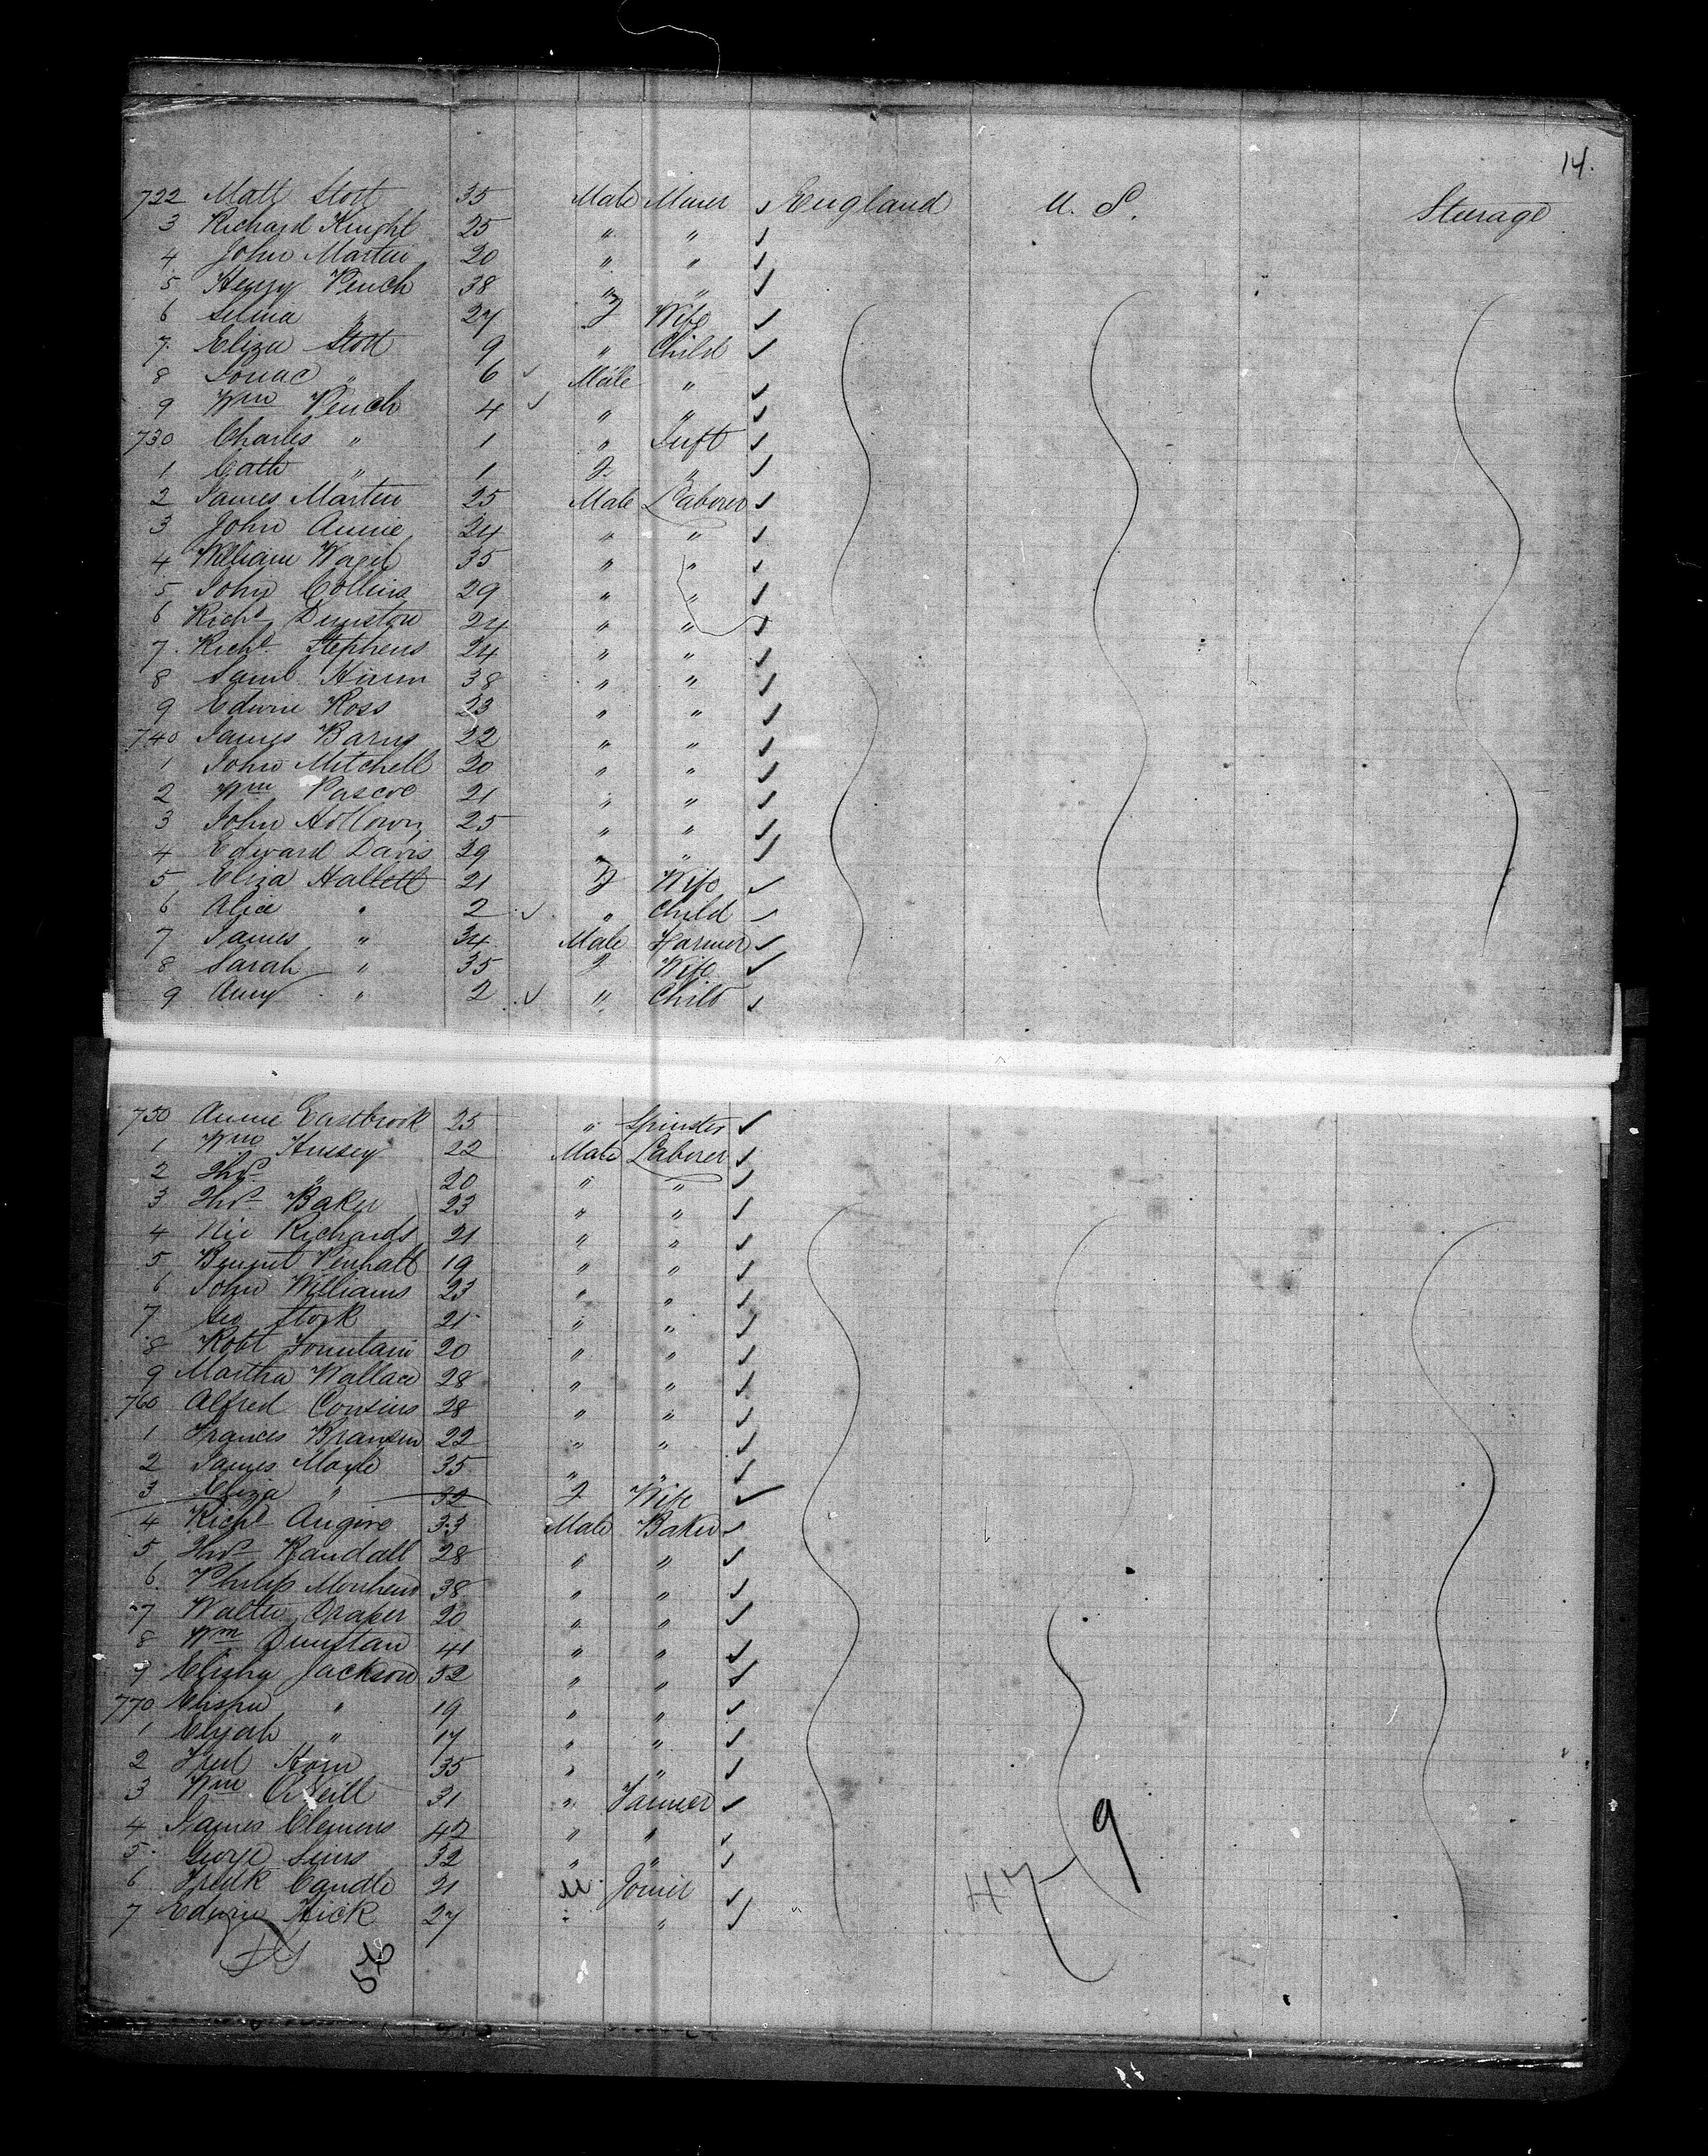 14.
722 Matt Stott 35 Male Miner ✓ England U. S. Steerage
3 Richard Knight 25 " " ✓
4 John Martin 20 " " ✓
5 Henry Pench 38 " " ✓
6 Selina " 27 F Wife ✓
7 Eliza Stott 9 " Child ✓
8 " 6 ✓ Male " ✓
9 Wm Pench 4 ✓ " " ✓
730 Charles " 1 " Inft ✓
1 Cath " 1 F. " ✓
2 James Martin 25 Male Laborer ✓
3 John Annie 24 " " ✓
4 William 35 " " ✓
5 John Collins 29 " " ✓
6 Richd Dunston 24 " " ✓
7. Richd Stephens 24 " " ✓
8 Saml 38 " " ✓
9 Edwin Ross 23 " " ✓
740 James Barns 22 " " ✓
1 John Mitchell 20 " " ✓
2 Wm Pascoe 21 " " ✓
3 John Hollown 25 " " ✓
4 Edward Davis 29 " " ✓
5 Eliza Hallett 21 F Wife ✓
6 Alice " 2 ✓ " Child ✓
7 James " 34 Male Farmer ✓
8 Sarah " 35 F Wife ✓
9 Amy " 2 ✓ " Child ✓
750 Annie Eastbrook 25 " Spinster ✓
1 Wm Hussey 22 Male Laborer ✓
2 Thos " 20 " " ✓
3 Thos Baker 23 " " ✓
4 Nic Richards 21 " " ✓
5 Bennet Penhall 19 " " ✓
6 John Williams 23 " " ✓
7 Geo Stork 21 " " ✓
8 Robt Fountain 20 " " ✓
9 Martha Wallace 28 " " ✓
760 Alfred Cousins 28 " " ✓
1 Frances 22 " " ✓
2 James Mayle 35 " " ✓
3 Eliza " 32 F Wife ✓
4 Richd Angove 33 Male Baker ✓
5 Thos Randall 28 " " ✓
6 Philip 38 " " ✓
7 Walter Draper 20 " " ✓
8 Wm Dunstan 41 " " ✓
9 Elisha Jackson 52 " " ✓
770 Elisha " 19 " " ✓
1 Elijah " 17 " " ✓
2 Fred Horn 35 " " ✓
3 Wm O'Neill 31 " Farmer ✓
4 James Clemens 42 " " ✓
5 George Sims 32 " " ✓
6 Fredk Caudle 21 M Joiner ✓
7 Edwin Hick 27 " " ✓
9
47
56